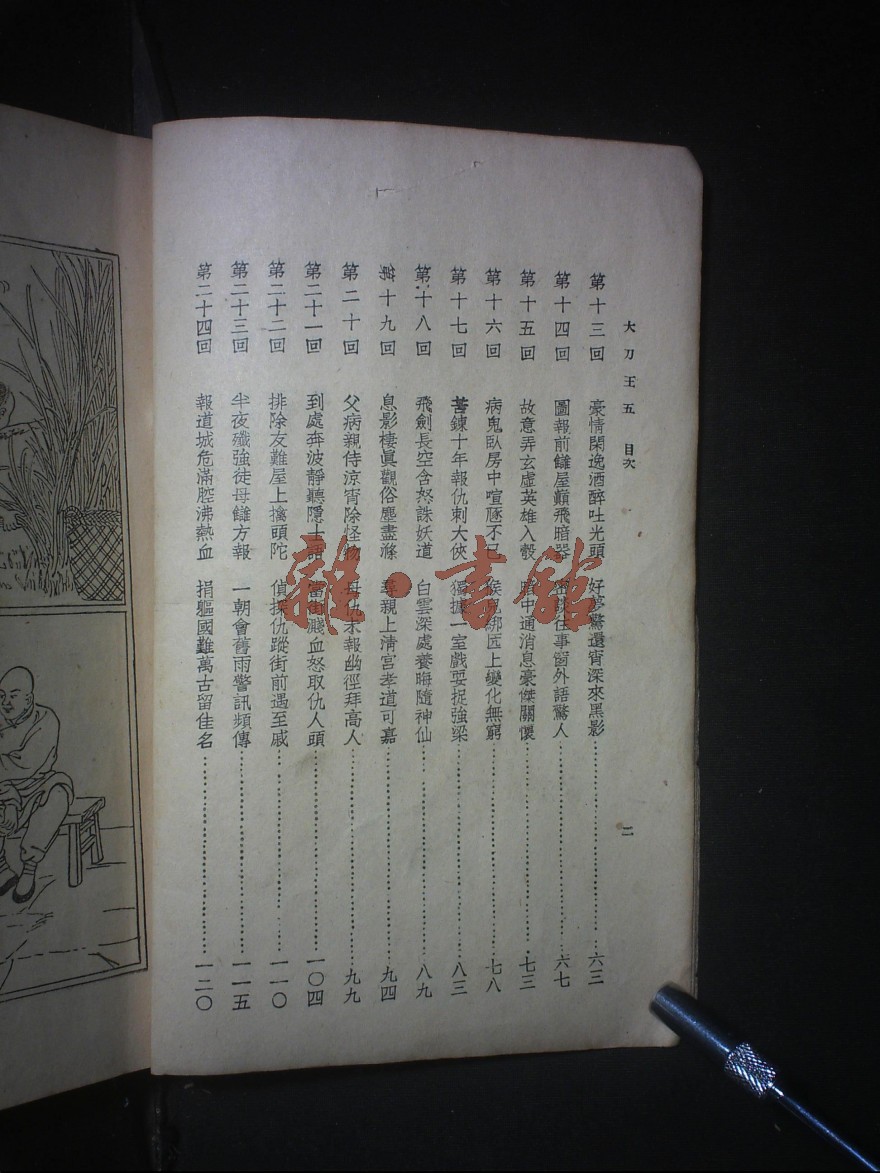 大刀王五 目次 二
第十三回 豪情閑逸酒醉吐光頭 好夢驚還宵深來黑影 六三
第十四回 圖報前讎屋巔飛暗器 密談往事窗外語驚人 六七
第十五回 故意弄玄虛英雄入彀 暗中通消息豪傑關懷 七三
第十六回 病鬼臥房中喧豗不已 猴兒綁匠上變化無窮 七八
第十七回 苦鍊十年報仇刺大俠 獨據一室戲耍捉強梁 八三
第十八回 飛劍長空含怒誅妖道 白雲深處養晦隨神仙 八九
第十九回 息影棲眞觀俗塵盡滌 尋親上淸宮孝道可嘉 九四
第二十回 父病親侍涼宵除怪物 母仇未報幽徑拜高人 九九
第二十一回 到處奔波靜聽隱士語 當街濺血怒取仇人頭 一〇四
第二十二回 排除友難屋上擒頭陀 偵探仇蹤街前遇至戚 一一〇
第二十三回 半夜殲強徒母讎方報 一朝會舊雨警訊頻傳 一一五
第二十四回 報道城危滿腔沸熱血 捐軀國難萬古留佳名 一二〇
雜·書館